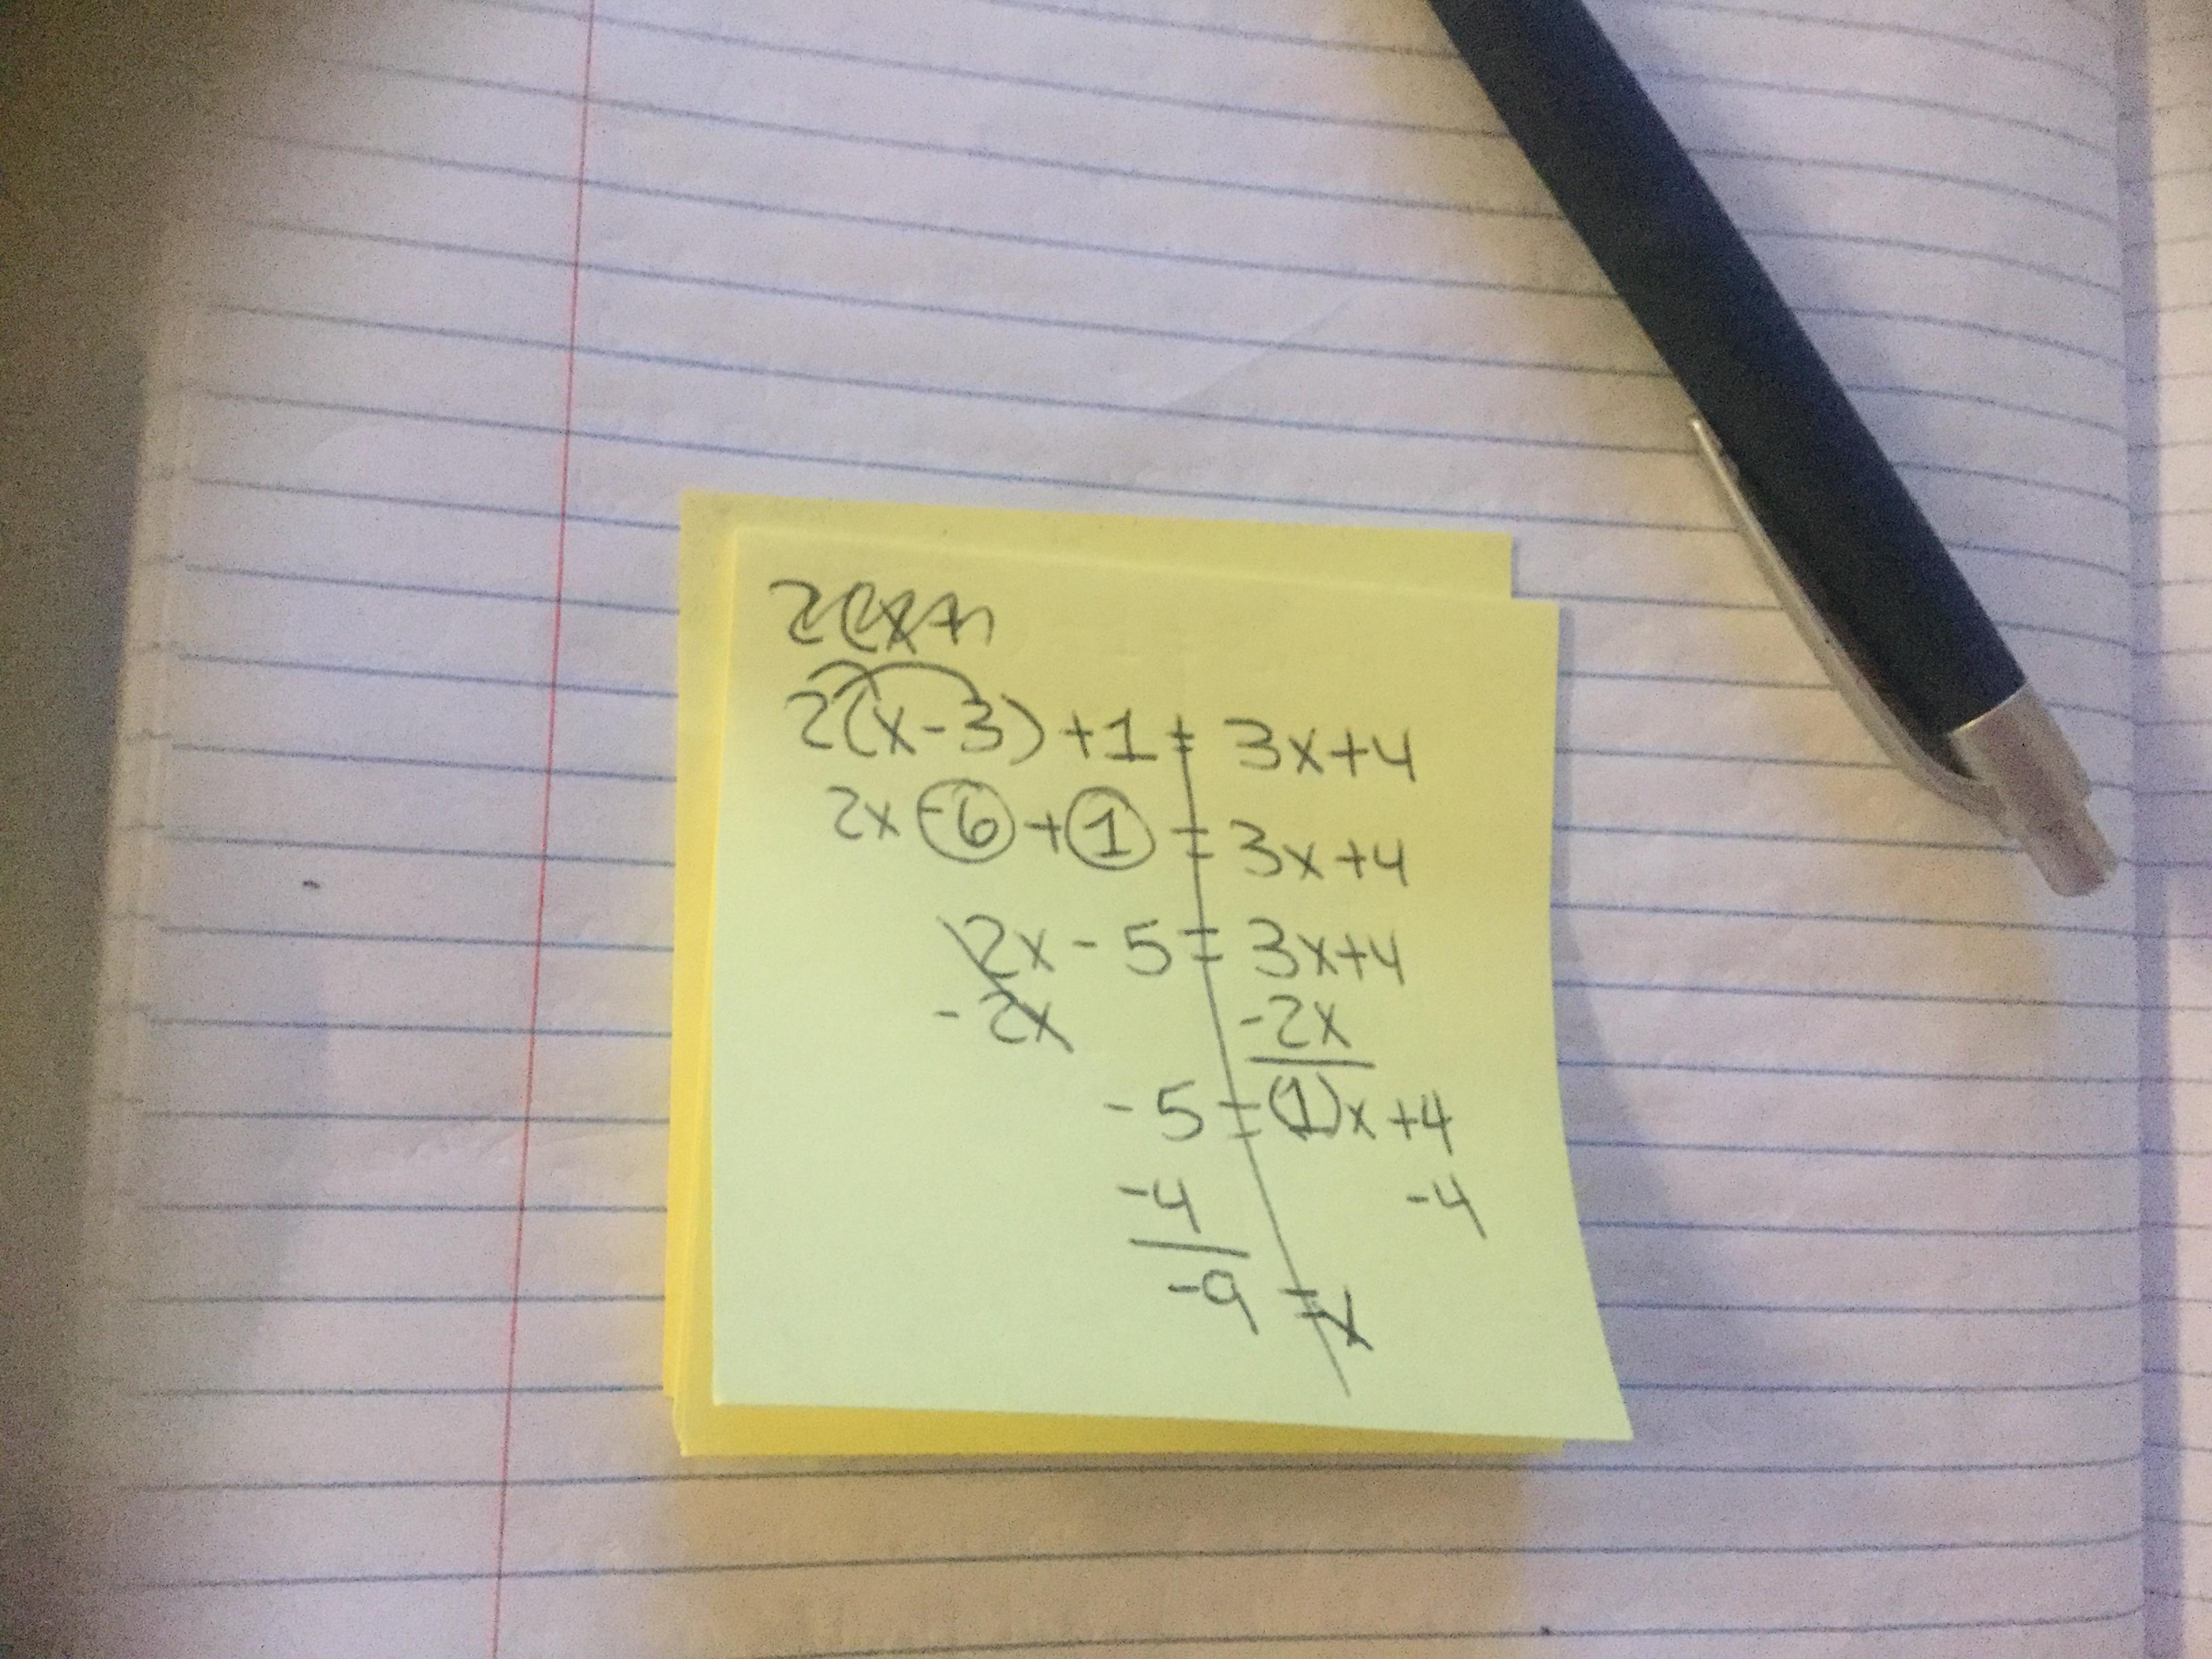 2(x-3)+1 = 3x+4
2x -6 + 1 = 3x+4
2x - 5 = 3x+4
- 2x -2x
-5 = (1)x +4
-4 -4
-9 = x